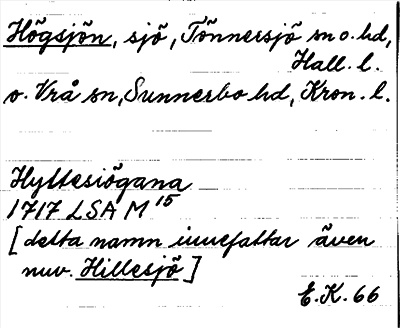 Högsjön, sjö, Tönnersjö sn o. hd,
Hall. l.
o. Vrå sn, Sunnerbo hd, Kron. l.
Hyttesiögana
1717 LSA M 15
[detta namn innefattar även
nuv. Hillesjö]
E.K. 66